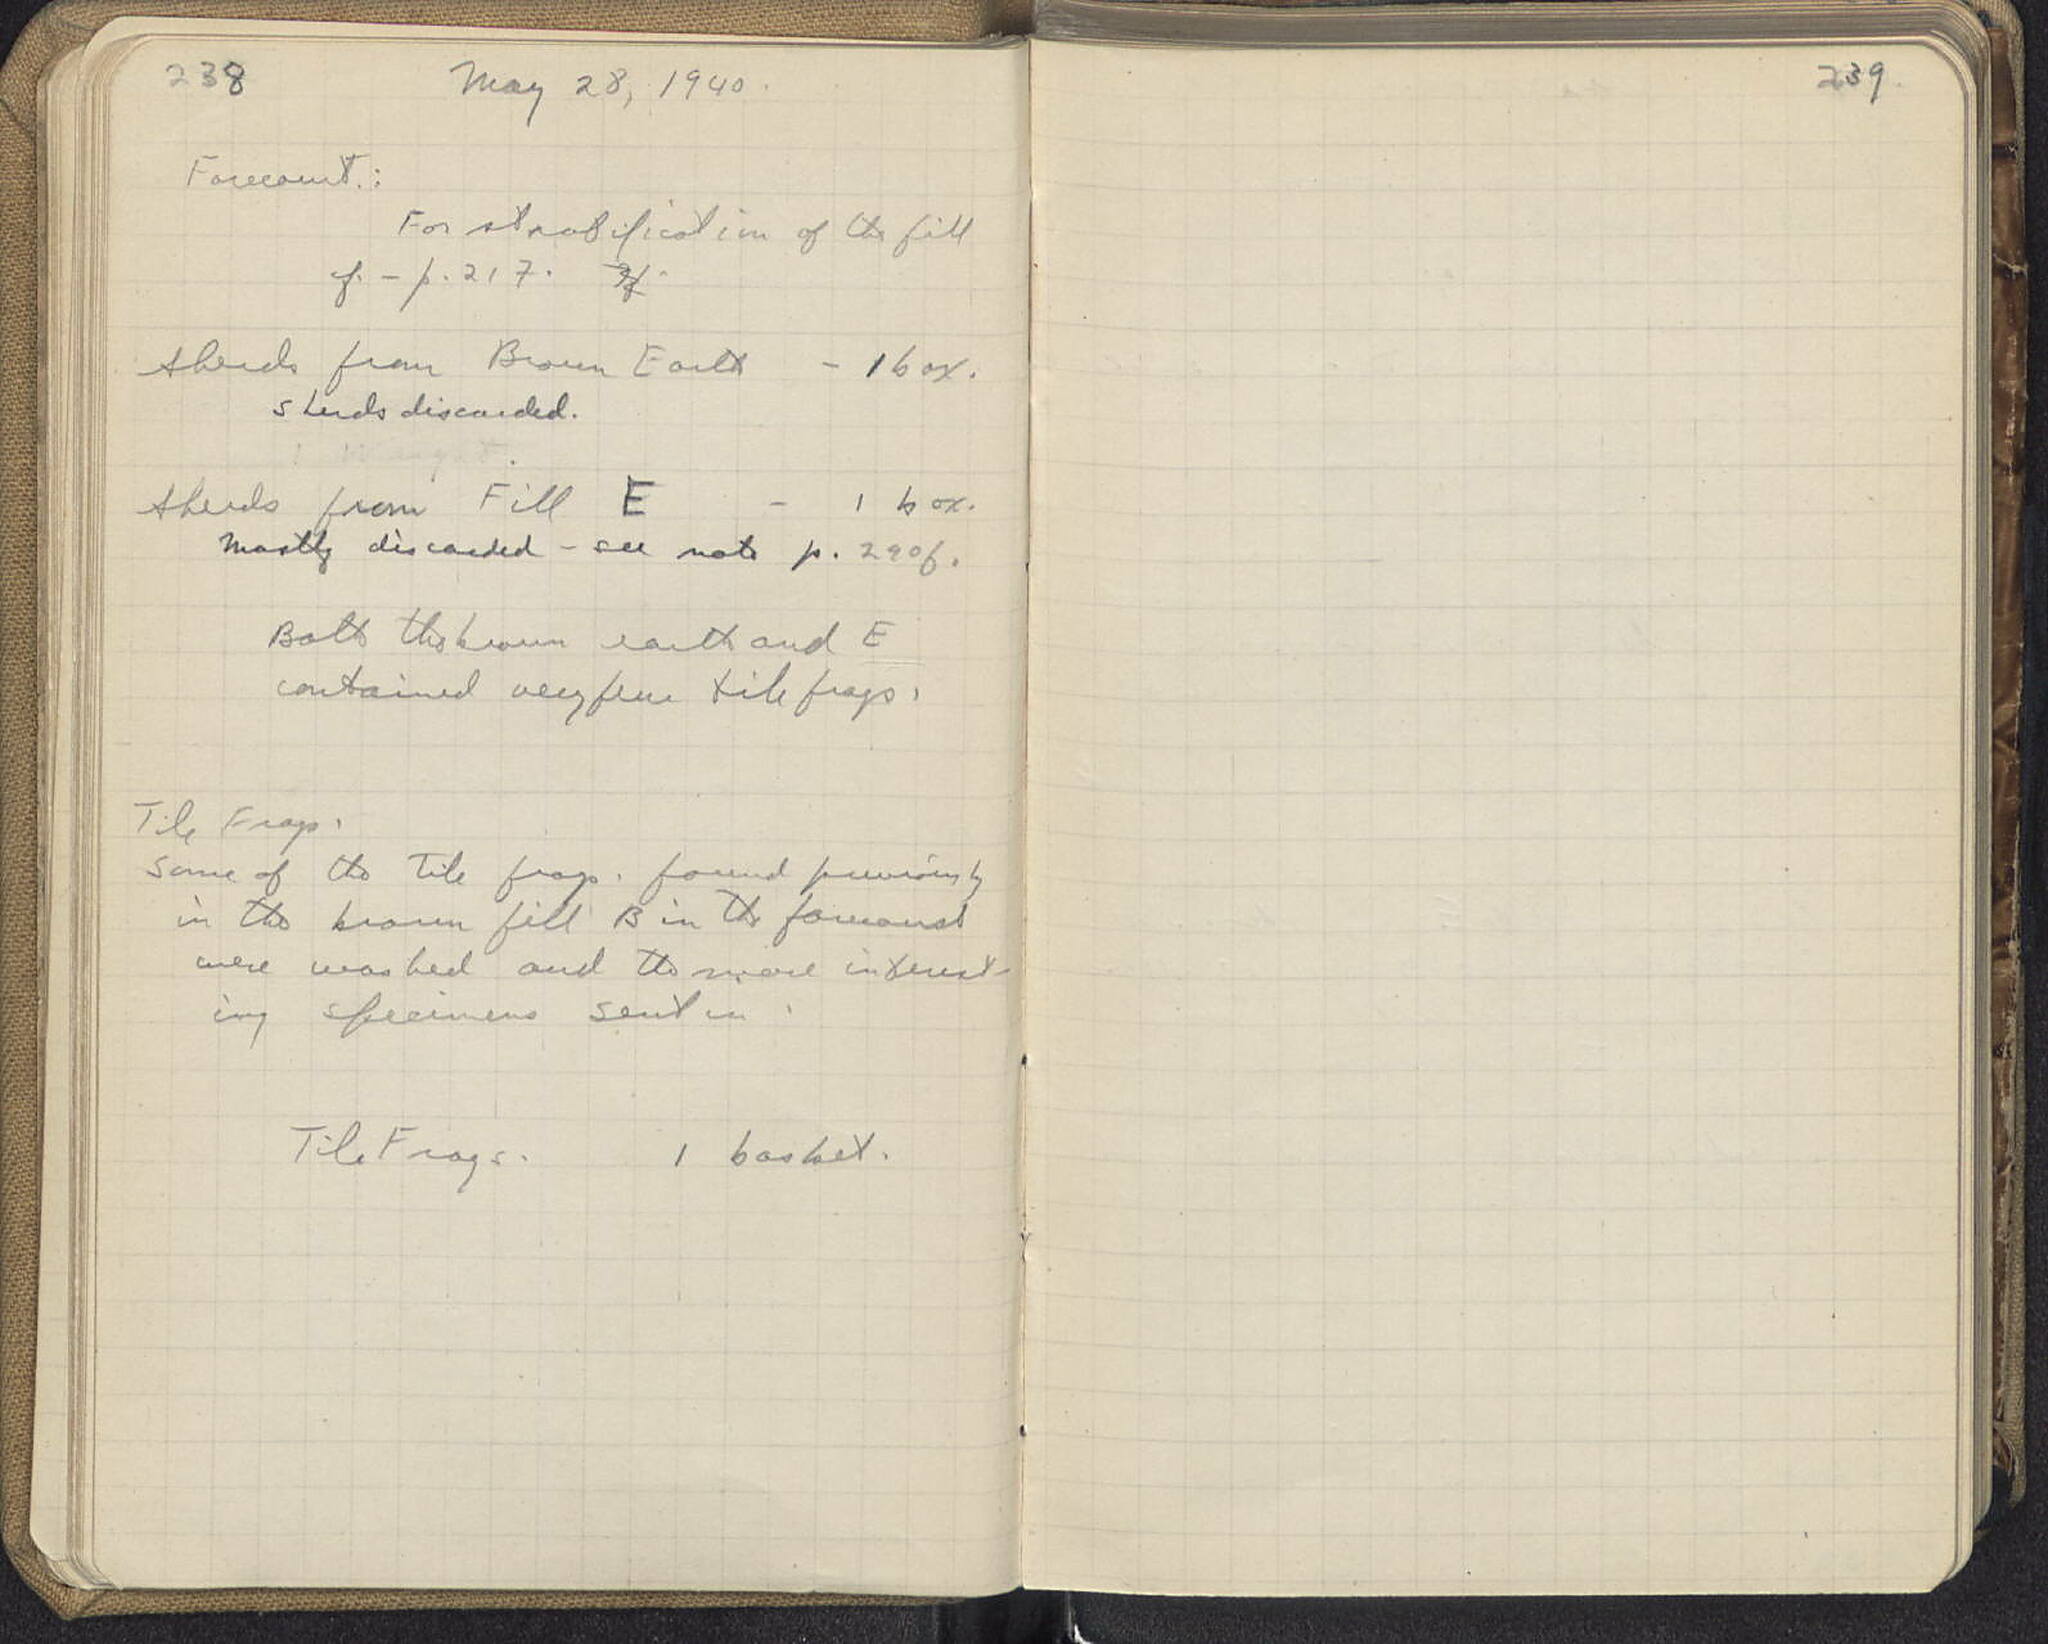 238
May 28, 1940.
Forecourt.:
For stratification of the fill
cf. - p. 217.
sherds from Brown Earth - 1 box.
sherds discarded.
sherds from Fill E - 1 box.
Mostly discarded - see note p. 290f.
Both the brown earth and E
contained very few tile frags.
Tile Frags.
Some of the Tile frags. found previously
in the brown fill B in the forecourt
were washed and the more interest-
ing specimens sent in.
Tile Frags. 1 basket.
239